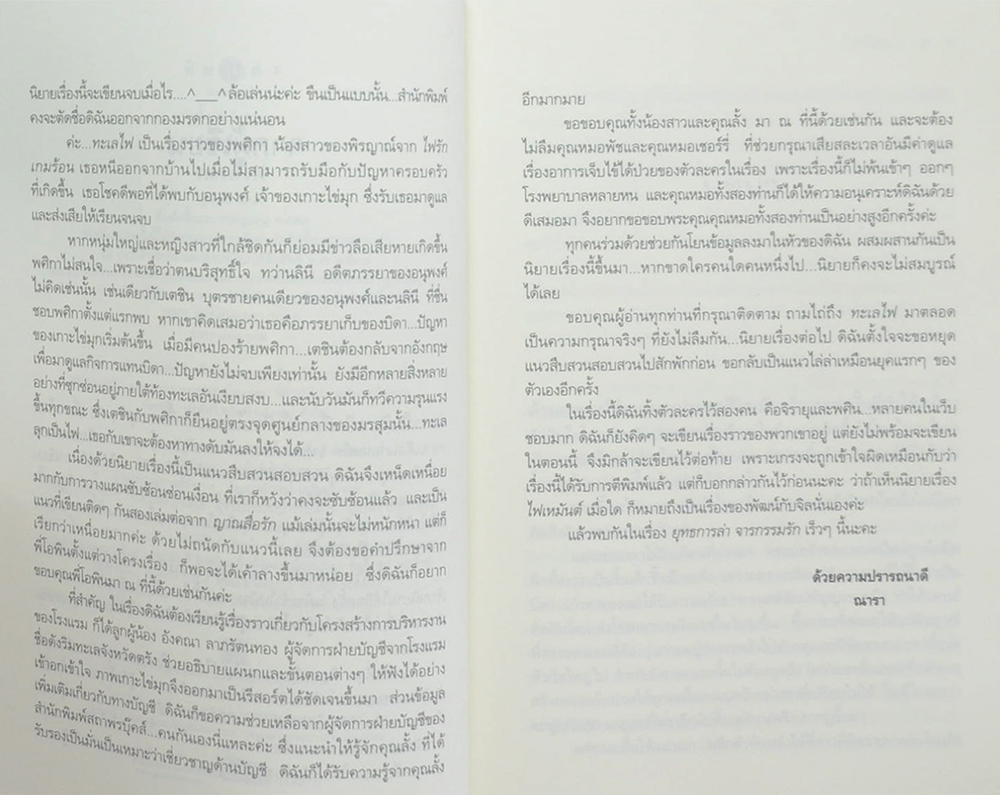 นิยายเรื่องนี้จะเขียนจบเมื่อไร....^___^ ล้อเล่นน่ะค่ะ ขืนเป็นแบบนั้น...สำนักพิมพ์
คงจะตัดชื่อดิฉันออกจากกองมรดกอย่างแน่นอน
ค่ะ...ทะเลไฟ เป็นเรื่องราวของพศิกา น้องสาวของพิรญาณ์จาก ไฟรัก
เกมร้อน เธอหนีออกจากบ้านไปเมื่อไม่สามารถรับมือกับปัญหาครอบครัว
ที่เกิดขึ้น เธอโชคดีพอที่ได้พบกับอนุพงศ์ เจ้าของเกาะไข่มุก ซึ่งรับเธอมาดูแล
และส่งเสียให้เรียนจนจบ
หากหนุ่มใหญ่และหญิงสาวที่ใกล้ชิดกันก็ย่อมมีข่าวลือเสียหายเกิดขึ้น
พศิกาไม่สนใจ...เพราะเชื่อว่าตนบริสุทธิ์ใจ ทว่านลินี อดีตภรรยาของอนุพงศ์
ไม่คิดเช่นนั้น เช่นเดียวกับเตชิน บุตรชายคนเดียวของอนุพงศ์และนลินี ที่ชื่น
ชอบพศิกาตั้งแต่แรกพบ หากเขาคิดเสมอว่าเธอคือภรรยาเก็บของบิดา...ปัญหา
ของเกาะไข่มุกเริ่มต้นขึ้น เมื่อมีคนปองร้ายพศิกา...เตชินต้องกลับจากอังกฤษ
เพื่อมาดูแลกิจการแทนบิดา...ปัญหายังไม่จบเพียงเท่านั้น ยังมีอีกหลายสิ่งหลาย
อย่างที่ซุกซ่อนอยู่ภายใต้ท้องทะเลอันเงียบสงบ...และนับวันมันก็ทวีความรุนแรง
ขึ้นทุกขณะ ซึ่งเตชินกับพศิกาก็ยืนอยู่ตรงจุดศูนย์กลางของมรสุมนั้น...ทะเล
ลุกเป็นไฟ...เธอกับเขาจะต้องหาทางดับมันลงให้จงได้...
เนื่องด้วยนิยายเรื่องนี้เป็นแนวสืบสวนสอบสวน ดิฉันจึงเหน็ดเหนื่อย
มากกับการวางแผนซับซ้อนซ่อนเงื่อน ที่เราก็หวังว่าคงจะซับซ้อนแล้ว และเป็น
แนวที่เขียนติดๆ กันสองเล่มต่อจาก ญาณสื่อรัก แม้เล่มนั้นจะไม่หนักหนา แต่ก็
เรียกว่าเหนื่อยมากค่ะ ด้วยไม่ถนัดกับแนวนี้เลย จึงต้องขอคำปรึกษาจาก
พี่โอพินตั้งแต่วางโครงเรื่อง ก็พอจะได้เค้าลางขึ้นมาหน่อย ซึ่งดิฉันก็อยาก
ขอบคุณพี่โอพินมา ณ ที่นี้ด้วยเช่นกันค่ะ
ที่สำคัญ ในเรื่องดิฉันต้องเรียนรู้เรื่องราวเกี่ยวกับโครงสร้างการบริหารงาน
ของโรงแรม ก็ได้ลูกผู้น้อง อังคณา ลาภรัตนทอง ผู้จัดการฝ่ายบัญชีจากโรงแรม
ชื่อดังริมทะเลจังหวัดตรัง ช่วยอธิบายแผนกและขั้นตอนต่างๆ ให้ฟังได้อย่าง
เข้าอกเข้าใจ ภาพเกาะไข่มุกจึงออกมาเป็นรีสอร์ตได้ชัดเจนขึ้นมา ส่วนข้อมูล
เพิ่มเติมเกี่ยวกับทางบัญชี ดิฉันก็ขอความช่วยเหลือจากผู้จัดการฝ่ายบัญชีของ
สำนักพิมพ์สถาพรบุ๊คส์...คนกันเองนี่แหละค่ะ ซึ่งแนะนำให้รู้จักคุณลั้ง ที่ได้
รับรองเป็นมั่นเป็นเหมาะว่าเชี่ยวชาญด้านบัญชี ดิฉันก็ได้รับความรู้จากคุณลั้ง
อีกมากมาย
ขอขอบคุณทั้งน้องสาวและคุณลั้ง มา ณ ที่นี้ด้วยเช่นกัน และจะต้อง
ไม่ลืมคุณหมอพัชและคุณหมอเชอร์รี่ ที่ช่วยกรุณาเสียสละเวลาอันมีค่าดูแล
เรื่องอาการเจ็บไข้ได้ป่วยของตัวละครในเรื่อง เพราะเรื่องนี้ก็ไม่พ้นเข้าๆ ออกๆ
โรงพยาบาลหลายหน และคุณหมอทั้งสองท่านก็ได้ให้ความอนุเคราะห์ดิฉันด้วย
ดีเสมอมา จึงอยากขอขอบพระคุณคุณหมอทั้งสองท่านเป็นอย่างสูงอีกครั้งค่ะ
ทุกคนร่วมด้วยช่วยกันโยนข้อมูลลงมาในหัวของดิฉัน ผสมผสานกันเป็น
นิยายเรื่องนี้ขึ้นมา...หากขาดใครคนใดคนหนึ่งไป...นิยายก็คงจะไม่สมบูรณ์
ได้เลย
ขอบคุณผู้อ่านทุกท่านที่กรุณาติดตาม ถามไถ่ถึง ทะเลไฟ มาตลอด
เป็นความกรุณาจริงๆ ที่ยังไม่ลืมกัน...นิยายเรื่องต่อไป ดิฉันตั้งใจจะขอหยุด
แนวสืบสวนสอบสวนไปสักพักก่อน ขอกลับเป็นแนวไล่ล่าเหมือนยุคแรกๆ ของ
ตัวเองอีกครั้ง
ในเรื่องนี้ดิฉันทิ้งตัวละครไว้สองคน คือจิรายุและพศิน...หลายคนในเว็บ
ชอบมาก ดิฉันก็ยังคิดๆ จะเขียนเรื่องราวของพวกเขาอยู่ แต่ยังไม่พร้อมจะเขียน
ในตอนนี้ จึงมิกล้าจะเขียนไว้ต่อท้าย เพราะเกรงจะถูกเข้าใจผิดเหมือนกับว่า
เรื่องนี้ได้รับการตีพิมพ์แล้ว แต่ก็บอกกล่าวกันไว้ก่อนนะคะ ว่าถ้าเห็นนิยายเรื่อง
ไฟเหมันต์ เมื่อใด ก็หมายถึงเป็นเรื่องของพัฒน์กับจิลนั่นเองค่ะ
แล้วพบกันในเรื่อง ยุทธการล่า จารกรรมรัก เร็วๆ นี้นะคะ
ด้วยความปรารถนาดี
ณารา